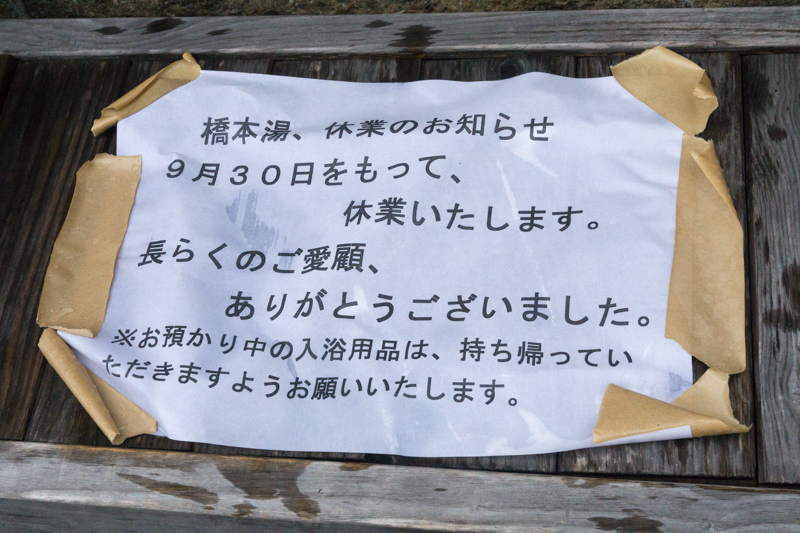 橋本湯、休業のお知らせ
９月３０日をもって、
休業いたします。
長らくのご愛顧、
ありがとうございました。
※お預かり中の入浴用品は、持ち帰ってい
ただきますようお願いいたします。